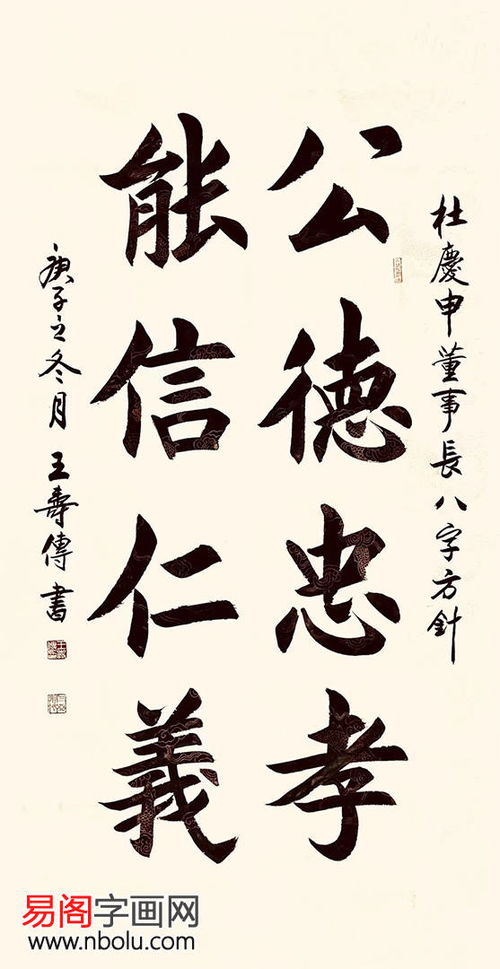 杜慶申董事長八字方針
公德忠孝
能信仁義
庚子之冬月 王壽傳書
易阁字画网
www.nbolu.com